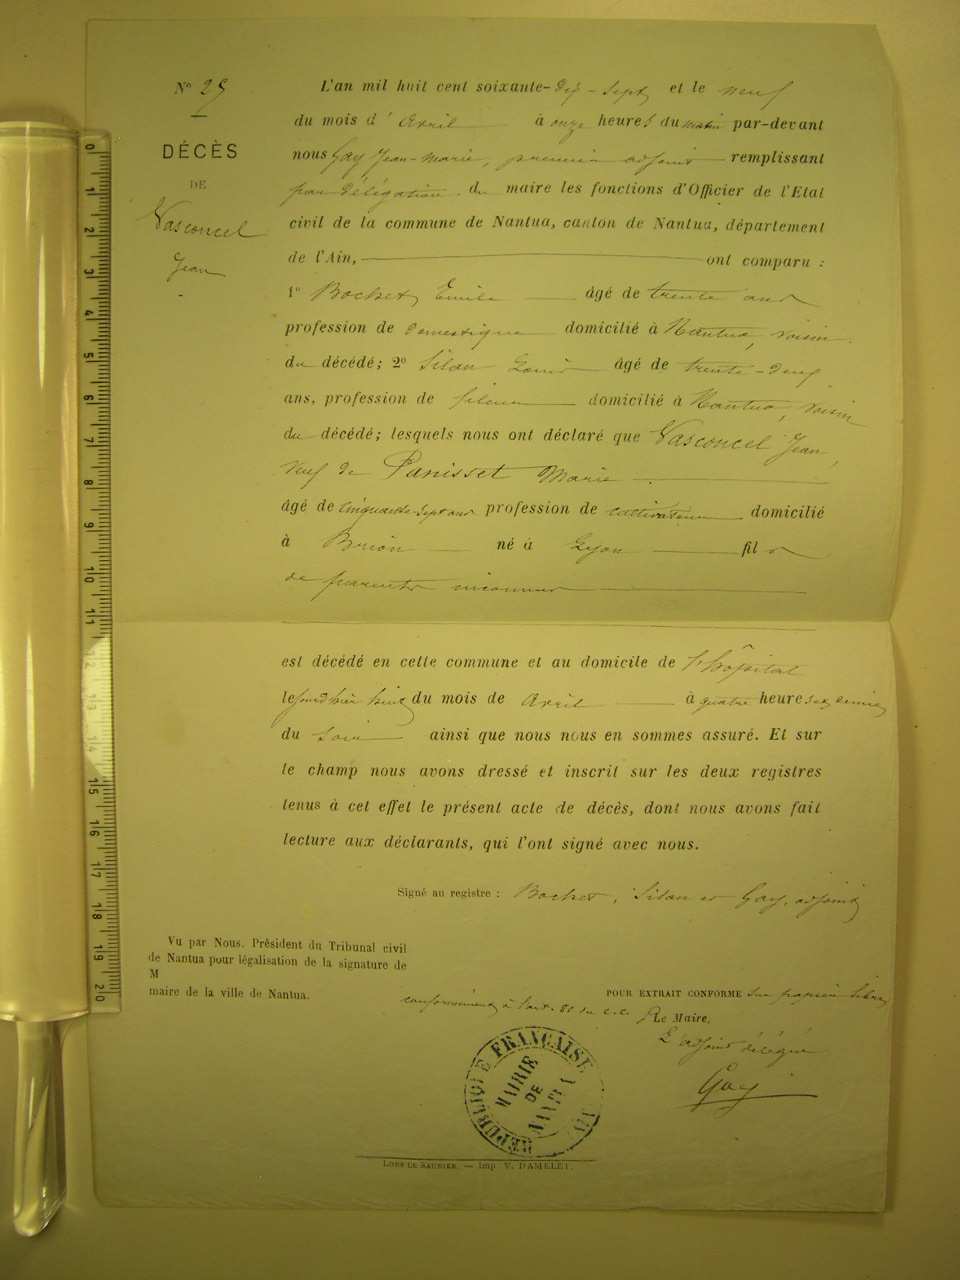 N° 25
DÉCÈS
DE
Vasconcel
Jean
L'an mil huit cent soixante-dix-sept et le neuf
du mois d'Avril à onze heures du matin par-devant
nous Gay Jean-Marie, premier adjoint remplissant
par délégation du maire les fonctions d'Officier de l'Etat
civil de la commune de Nantua, canton de Nantua, département
de l'Ain, ont comparu :
1° Bochet Emile âgé de trente ans
profession de domestique domicilié à Nantua, voisin
du décédé; 2° Silan Louis âgé de trente-neuf
ans, profession de fileur domicilié à Nantua, voisin
du décédé; lesquels nous ont déclaré que Vasconcel Jean,
veuf de Panisset Marie
âgé de cinquante-sept ans profession de cultivateur domicilié
à Brion né à Lyon fils
de parents inconnus
est décédé en cette commune et au domicile de l'hôpital
le jour d'hier huit du mois de Avril à quatre heures et demie
du soir ainsi que nous nous en sommes assuré. Et sur
le champ nous avons dressé et inscrit sur les deux registres
tenus à cet effet le présent acte de décès, dont nous avons fait
lecture aux déclarants, qui l'ont signé avec nous.
Signé au registre : Bochet, Silan et Gay, adjoint
Vu par Nous, Président du Tribunal civil
de Nantua pour légalisation de la signature de
M
maire de la ville de Nantua.
POUR EXTRAIT CONFORME sur papier libre
conformément à l'art. 80 du c.c.
Le Maire,
L'adjoint délégué
Gay
RÉPUBLIQUE FRANÇAISE
MAIRIE
DE
NANTUA
AIN
LONS-LE-SAUNIER. — Imp V. DAMELET.
0 1 2 3 4 5 6 7 8 9 10 11 12 13 14 15 16 17 18 19 20